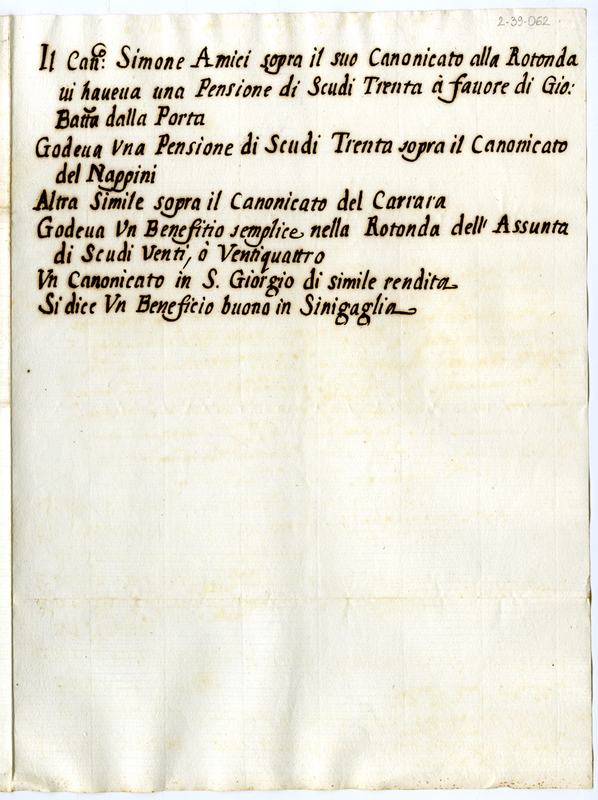 2-39-062
Il Can.º: Simone Amici sopra il suo Canonicato alla Rotonda
ui haueua una Pensione di Scudi Trenta à fauore di Gio:
Batta dalla Porta
Godeua Vna Pensione di Scudi Trenta sopra il Canonicato
del Nappini
Altra Simile sopra il Canonicato del Carrara
Godeua Vn Benefitio semplice nella Rotonda dell' Assunta
di Scudi Venti, ò Ventiquattro
Vn Canonicato in S. Giorgio di simile rendita
Si dice Vn Beneficio buono in Sinigaglia